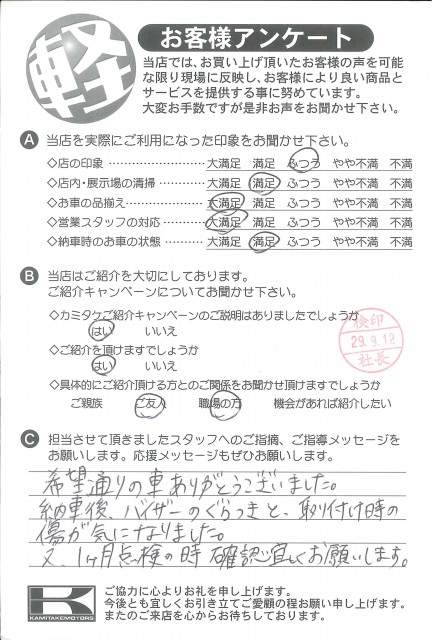 軽
お客様アンケート
当店では、お買い上げ頂いたお客様の声を可能
な限り現場に反映し、お客様により良い商品と
サービスを提供する事に努めています。
大変お手数ですが是非お声をお聞かせ下さい。
A 当店を実際にご利用になった印象をお聞かせ下さい。
◇店の印象 ………………… 大満足 満足 ふつう やや不満 不満
◇店内・展示場の清掃 ………… 大満足 満足 ふつう やや不満 不満
◇お車の品揃え ……………… 大満足 満足 ふつう やや不満 不満
◇営業スタッフの対応 ………… 大満足 満足 ふつう やや不満 不満
◇納車時のお車の状態 ………… 大満足 満足 ふつう やや不満 不満
B 当店はご紹介を大切にしております。
ご紹介キャンペーンについてお聞かせ下さい。
◇カミタケご紹介キャンペーンのご説明はありましたでしょうか
はい いいえ
◇ご紹介を頂けますでしょうか
はい いいえ
検印
29.9.12
社長
◇具体的にご紹介頂ける方とのご関係をお聞かせ頂けますでしょうか
ご親族 ご友人 職場の方 機会があれば紹介したい
C 担当させて頂きましたスタッフへのご指摘、ご指導メッセージを
お願いします。応援メッセージもぜひお願いします。
希望通りの車ありがとうございました。
納車後、バイザーのぐらつきと、取り付け時の
傷が気になりました。
又、1ヶ月点検の時確認宜しくお願いします。
K
KAMITAKEMOTORS
ご協力に心よりお礼を申し上げます。
今後とも宜しくお引き立てご愛顧の程お願い申し上げます。
またのご来店を心からお待ちしております。